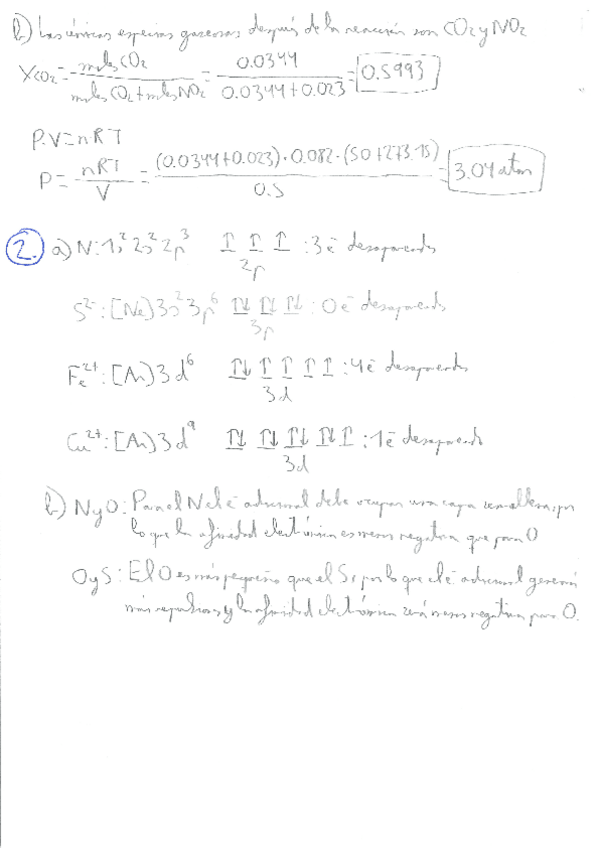 b) Las únicas especies gaseosas después de la reacción son CO2 y NO2
XCO2 = moles CO2 / moles CO2 + moles NO2 = 0.0344 / 0.0344+0.023 = 0.5993
P·V=nRT
P = nRT / V = (0.0344+0.023)·0.082·(50+273.15) / 0.5 = 3.04 atm
2. a) N: 1s² 2s² 2p³ ↑ ↑ ↑ : 3 e⁻ desapareados
2p
S²⁻: [Ne] 3s² 3p⁶ ↑↓ ↑↓ ↑↓ : 0 e⁻ desapareados
3p
Fe²⁺: [Ar] 3d⁶ ↑↓ ↑ ↑ ↑ ↑ : 4 e⁻ desapareados
3d
Cu²⁺: [Ar] 3d⁹ ↑↓ ↑↓ ↑↓ ↑↓ ↑ : 1 e⁻ desapareado
3d
b) N y O: Para el N el e⁻ adicional debe ocupar una capa semillena, por
lo que la afinidad electrónica es menos negativa que para O
O y S: El O es más pequeño que el S, por lo que el e⁻ adicional generará
más repulsiones y la afinidad electrónica será menos negativa para O.